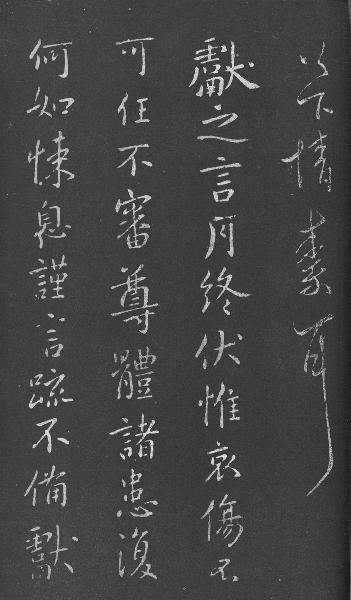 以下情　耳
獻之言月終伏惟哀傷不
可任不審尊體諸患復
何如悚息謹言疏不備獻